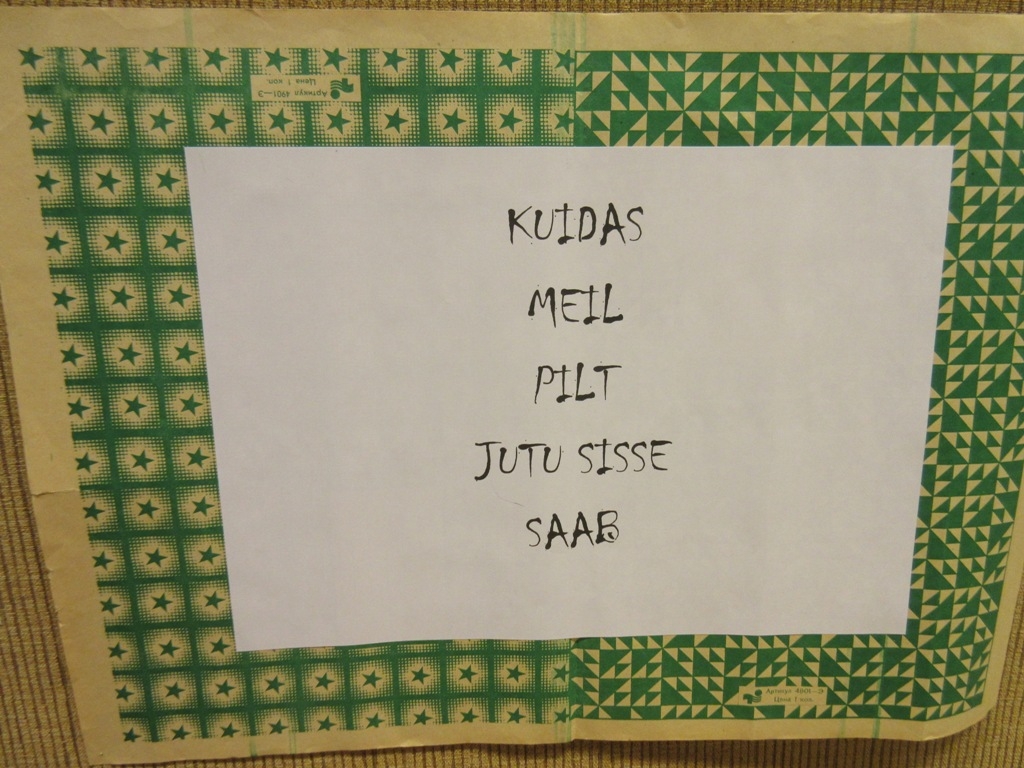 Артикул 4901—Э
Цена 1 коп.
KUIDAS
MEIL
PILT
JUTU SISSE
SAAB
Артикул 4901—Э
Цена 1 коп.